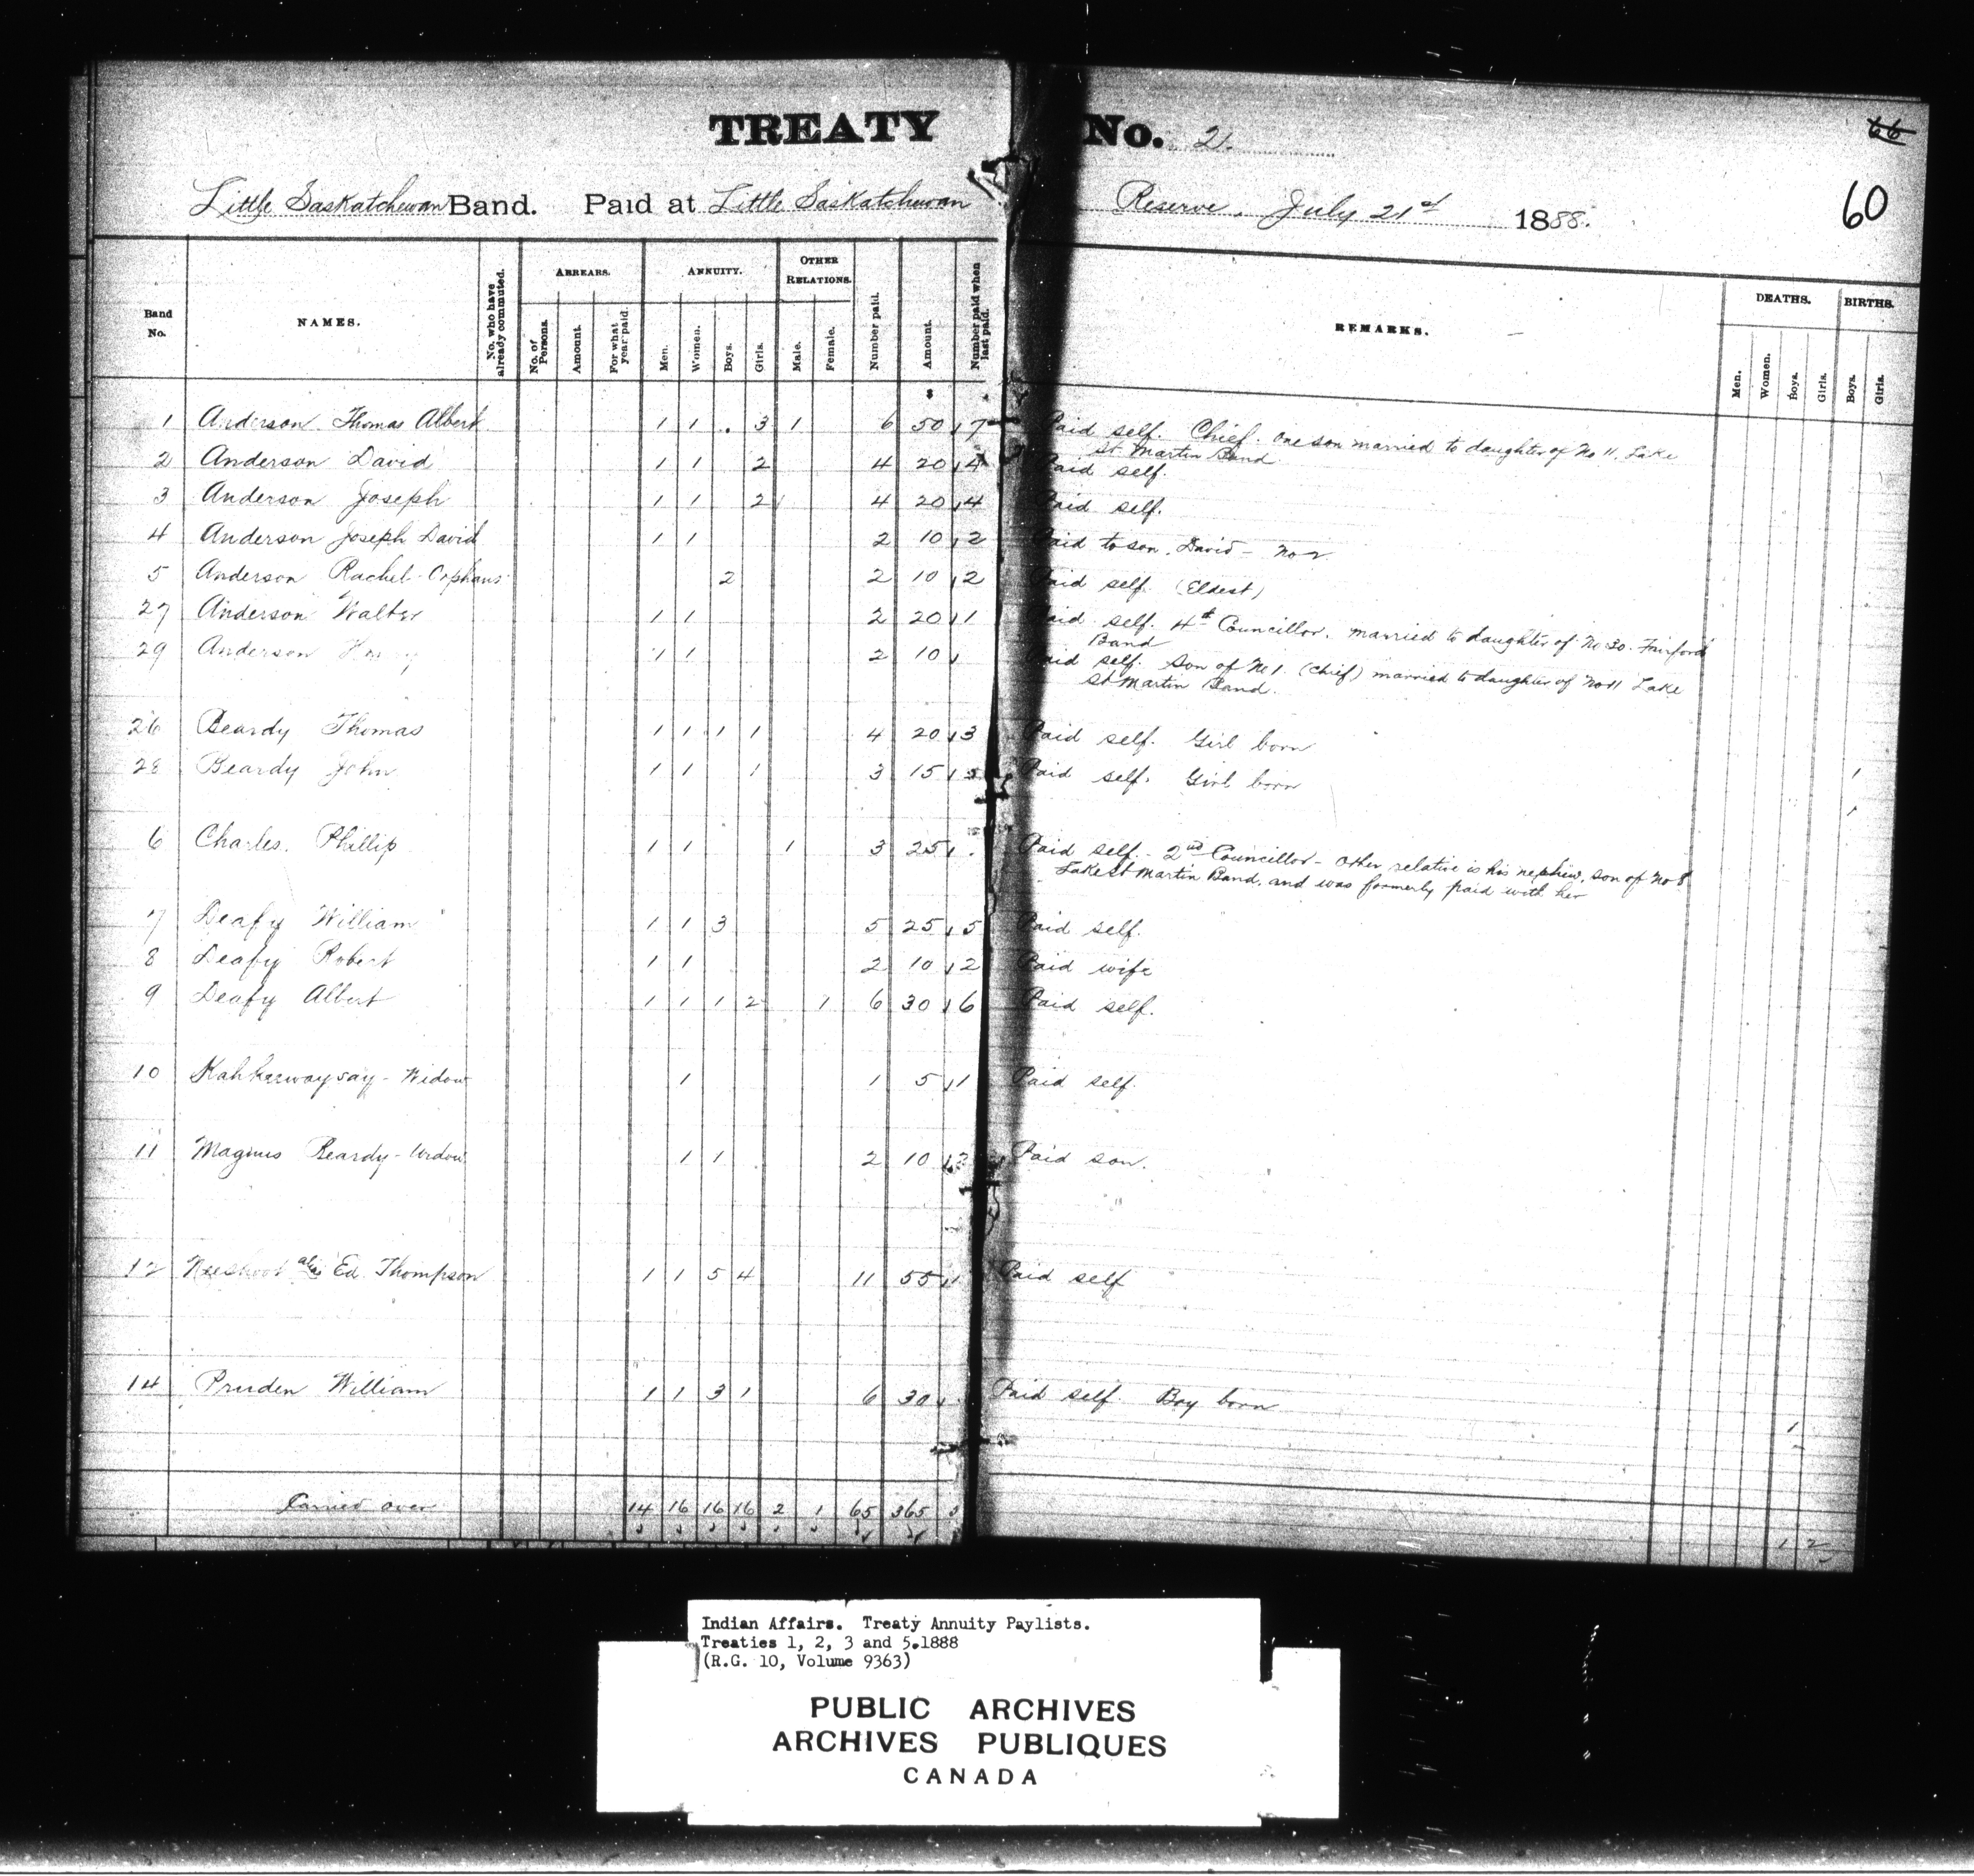 TREATY No. 2.
66
60
Little Saskatchewan Band. Paid at Little Saskatchewan Reserve. July 21st 1888.
Band No. NAMES. No. who have already commuted. ARREARS. No. of Persons. Amount. For what year paid. ANNUITY. Men. Women. Boys. Girls. OTHER RELATIONS. Male. Female. Number paid. Amount. Number paid when last paid. REMARKS. DEATHS. Men. Women. Boys. Girls. BIRTHS. Boys. Girls.
$
1 Anderson Thomas Albert 1 1 . 3 1 6 50 7 Paid self. Chief. one son married to daughter of No 11. Lake
St. Martin Band
2 Anderson David 1 1 2 4 20 4 Paid self.
3 Anderson Joseph 1 1 2 4 20 4 Paid self.
4 Anderson Joseph David 1 1 2 10 2 Paid to son. David - No 2
5 Anderson Rachel Orphans 2 2 10 2 Paid self. (Eldest)
27 Anderson Walter 1 1 2 20 1 Paid self. 4th Councillor. married to daughter of No 30. Fairford
Band
29 Anderson 1 1 2 10 Paid self. Son of No 1. (Chief) married to daughter of No 11 Lake
St Martin Band.
26 Beardy Thomas 1 1 1 1 4 20 3 Paid self. Girl born
28 Beardy John 1 1 1 3 15 Paid self. Girl born 1
1
6 Charles. Phillip 1 1 1 3 25 Paid self. - 2nd Councillor - other relative is his nephew, son of No 8
Lake St Martin Band, and was formerly paid with her
7 Deafy William 1 1 3 5 25 5 Paid self.
8 Deafy Robert 1 1 2 10 2 Paid wife
9 Deafy Albert 1 1 1 2 1 6 30 6 Paid self.
10 Kahkerwaysay - Widow 1 1 5 1 Paid self.
11 Magnus Beardy - Widow 1 1 2 10 2 Paid son.
12 Neeshoot alias Ed. Thompson 1 1 5 4 11 55 Paid self
14 Pruden William 1 1 3 1 6 30 Paid self. Boy born
1
Carried over 14 16 16 16 2 1 65 365 1 2
Indian Affairs. Treaty Annuity Paylists.
Treaties 1, 2, 3 and 5.1888
(R.G. 10, Volume 9363)
PUBLIC ARCHIVES
ARCHIVES PUBLIQUES
CANADA